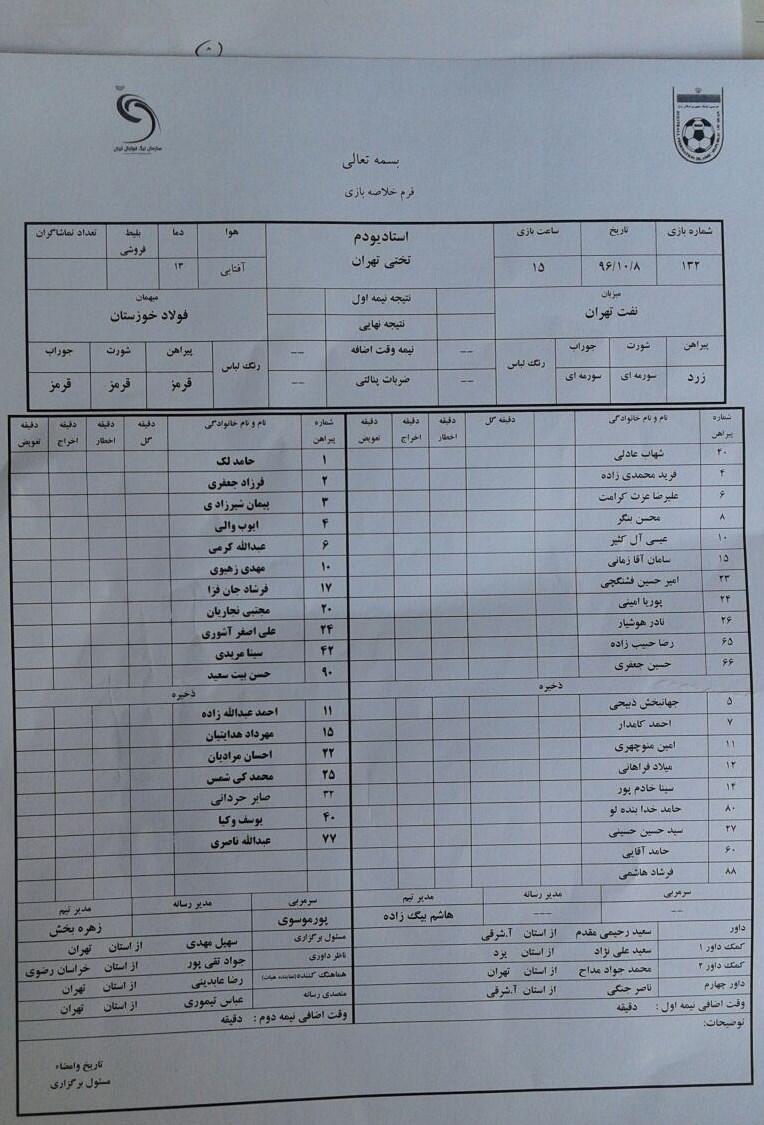 (۸)
سازمان لیگ فوتبال ایران
FOOTBALL FEDERATION ISLAMIC REPUBLIC OF IRAN
بسمه تعالی
فرم خلاصه بازی
شماره بازی تاریخ ساعت بازی استادیودم هوا دما بلیط فروشی تعداد تماشاگران
۱۳۲ ۹۶/۱۰/۸ ۱۵ تختی تهران آفتابی ۱۳
میزبان نتیجه نیمه اول میهمان
نفت تهران نتیجه نهایی فولاد خوزستان
پیراهن شورت جوراب رنگ لباس -- نیمه وقت اضافه -- رنگ لباس پیراهن شورت جوراب
زرد سورمه ای سورمه ای -- ضربات پنالتی -- قرمز قرمز قرمز
شماره پیراهن نام و نام خانوادگی دقیقه گل دقیقه اخطار دقیقه اخراج دقیقه تعویض
۲۰ شهاب عادلی
۴ فرید محمدی زاده
۶ علیرضا عزت کرامت
۸ محسن بنگر
۱۰ عیسی آل کثیر
۱۵ سامان آقا زمانی
۲۳ امیر حسین فشنگچی
۲۴ پوریا امینی
۲۶ نادر هوشیار
۶۵ رضا حبیب زاده
۶۶ حسین جعفری
ذخیره
۵ جهانبخش ذبیحی
۷ احمد کامدار
۱۱ امین منوچهری
۱۲ میلاد فراهانی
۱۴ سینا خادم پور
۸۰ حامد خدا بنده لو
۲۷ سید حسین حسینی
۶۰ حامد آقایی
۸۸ فرشاد هاشمی
سرمربی مدیر رسانه مدیر تیم
-- --- هاشم بیگ زاده
داور سعید رحیمی مقدم از استان آ.شرقی
کمک داور ۱ سعید علی نژاد از استان یزد
کمک داور ۲ محمد جواد مداح از استان تهران
داور چهارم ناصر جنگی از استان آ.شرقی
وقت اضافی نیمه اول : دقیقه
توضیحات:
شماره پیراهن نام و نام خانوادگی دقیقه گل دقیقه اخطار دقیقه اخراج دقیقه تعویض
۱ حامد لک
۲ فرزاد جعفری
۳ پیمان شیرزاد ی
۴ ایوب والی
۶ عبدالله کرمی
۱۰ مهدی زهیوی
۱۷ فرشاد جان فزا
۲۰ مجتبی نجاریان
۲۴ علی اصغر آشوری
۴۲ سینا مریدی
۹۰ حسن بیت سعید
ذخیره
۱۱ احمد عبدالله زاده
۱۵ مهرداد هدایتیان
۲۲ احسان مرادیان
۲۵ محمد کی شمس
۳۲ صابر حردانی
۴۰ یوسف وکیا
۷۷ عبدالله ناصری
سرمربی مدیر رسانه مدیر تیم
پورموسوی زهره بخش
مسئول برگزاری سهیل مهدی از استان تهران
ناظر داوری جواد تقی پور از استان خراسان رضوی
هماهنگ کننده(نماینده هیات) رضا عابدینی از استان تهران
متصدی رسانه عباس تیموری از استان تهران
وقت اضافی نیمه دوم : دقیقه
تاریخ وامضاء
مسئول برگزاری